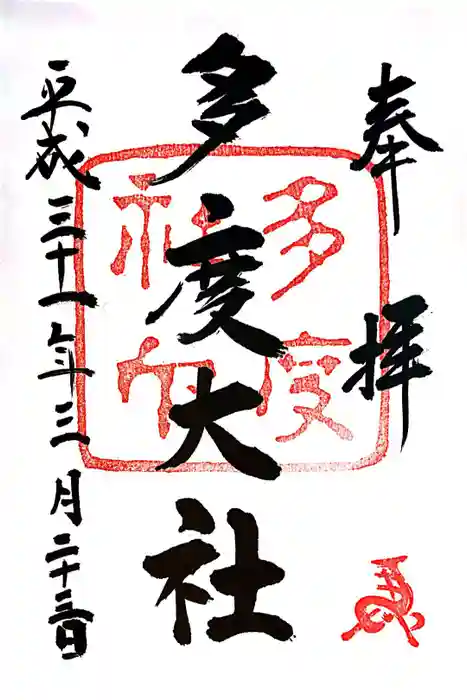 奉拝
多度大社
多度
神社
平成三十一年三月二十三日